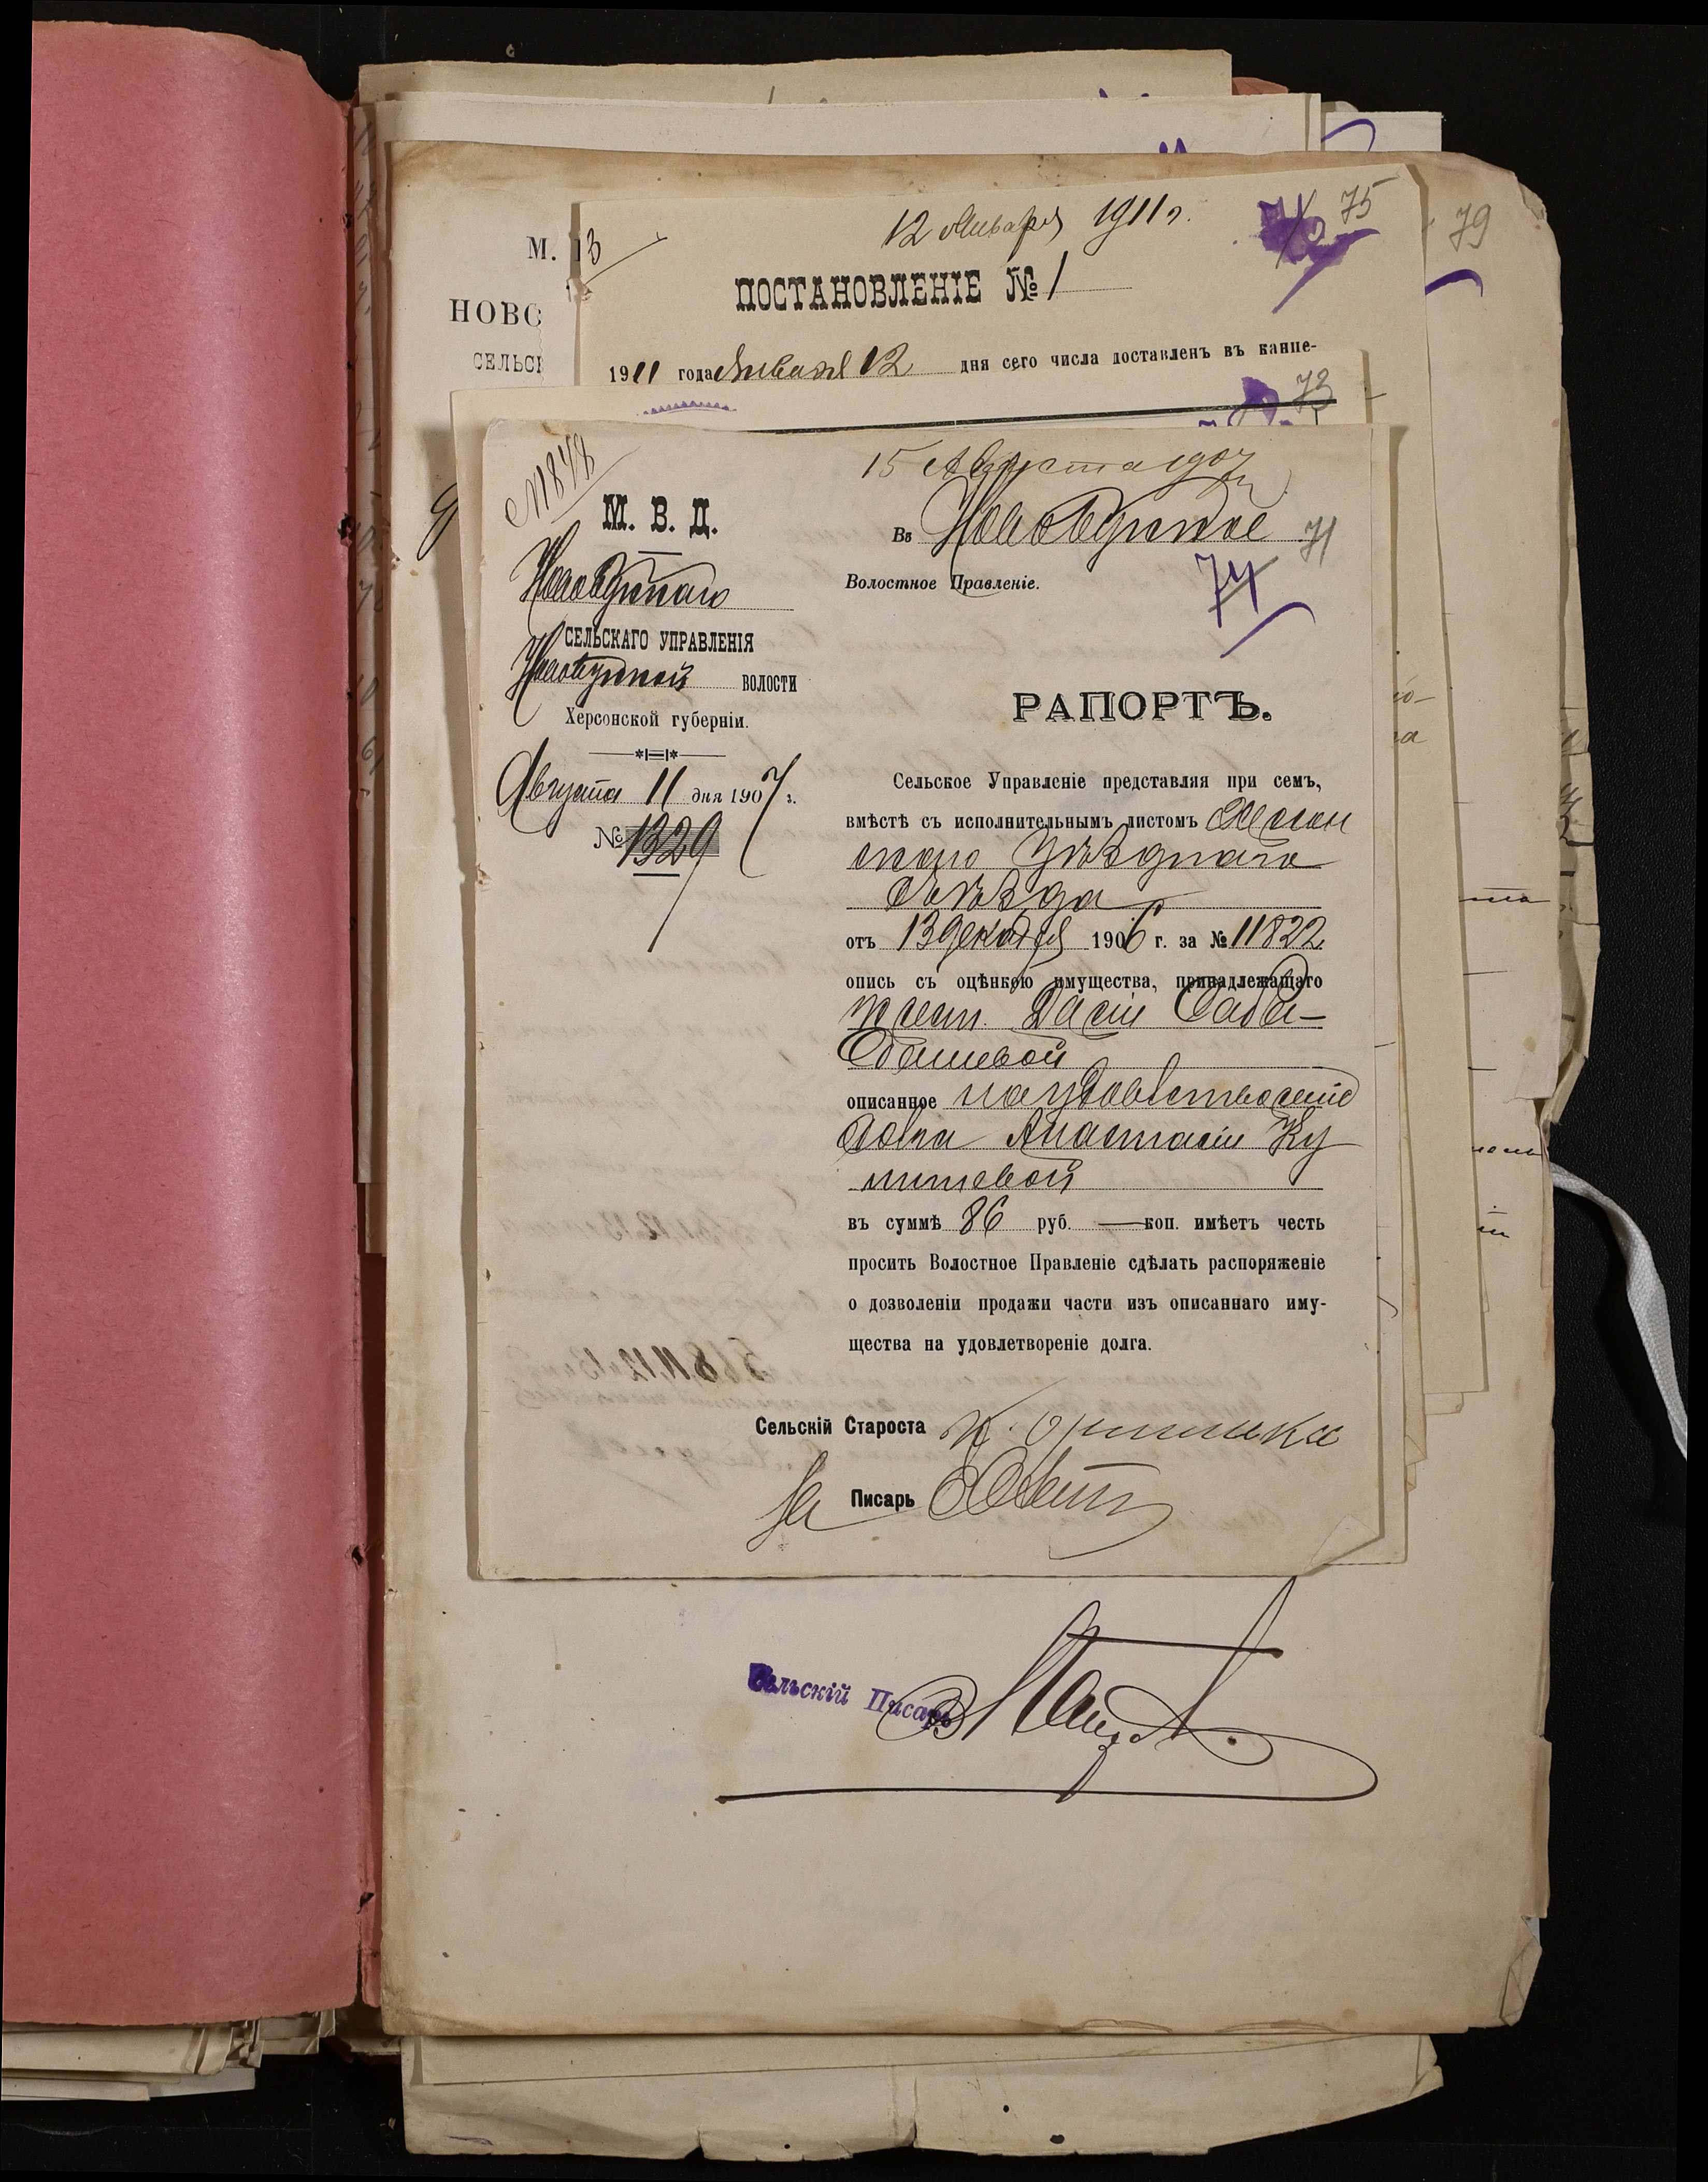 12 Января 1911 г.
75
79
М. В
ПОСТАНОВЛЕНІЕ № 1
НОВО
СЕЛЬСК
1911 года Января 12 дня сего числа доставленъ въ канце-
73
№ 1848
15 Августа 1907 г.
М. В. Д.
Новобугскаго
СЕЛЬСКАГО УПРАВЛЕНІЯ
Новобугской ВОЛОСТИ
Херсонской губерніи.
Августа 11 дня 1907 г.
№ 1329
Въ Новобугское
71
Волостное Правленіе.
74
РАПОРТЪ.
Сельское Управленіе представляя при семъ,
вмѣстѣ съ исполнительнымъ листомъ Херсон
скаго Уѣзднаго
Съѣзда
отъ 13 декабря 1906 г. за № 11822
опись съ оцѣнкою имущества, принадлежащаго
крест. Дасіи Сабо-
дашевой
описанное на удовлетвореніе
долга Анастасіи Ку
шевой
въ суммѣ 86 руб. — коп. имѣетъ честь
просить Волостное Правленіе сдѣлать распоряженіе
о дозволеніи продажи части изъ описаннаго иму-
щества на удовлетвореніе долга.
Сельскій Староста
За Писарь
Сельскій Писарь